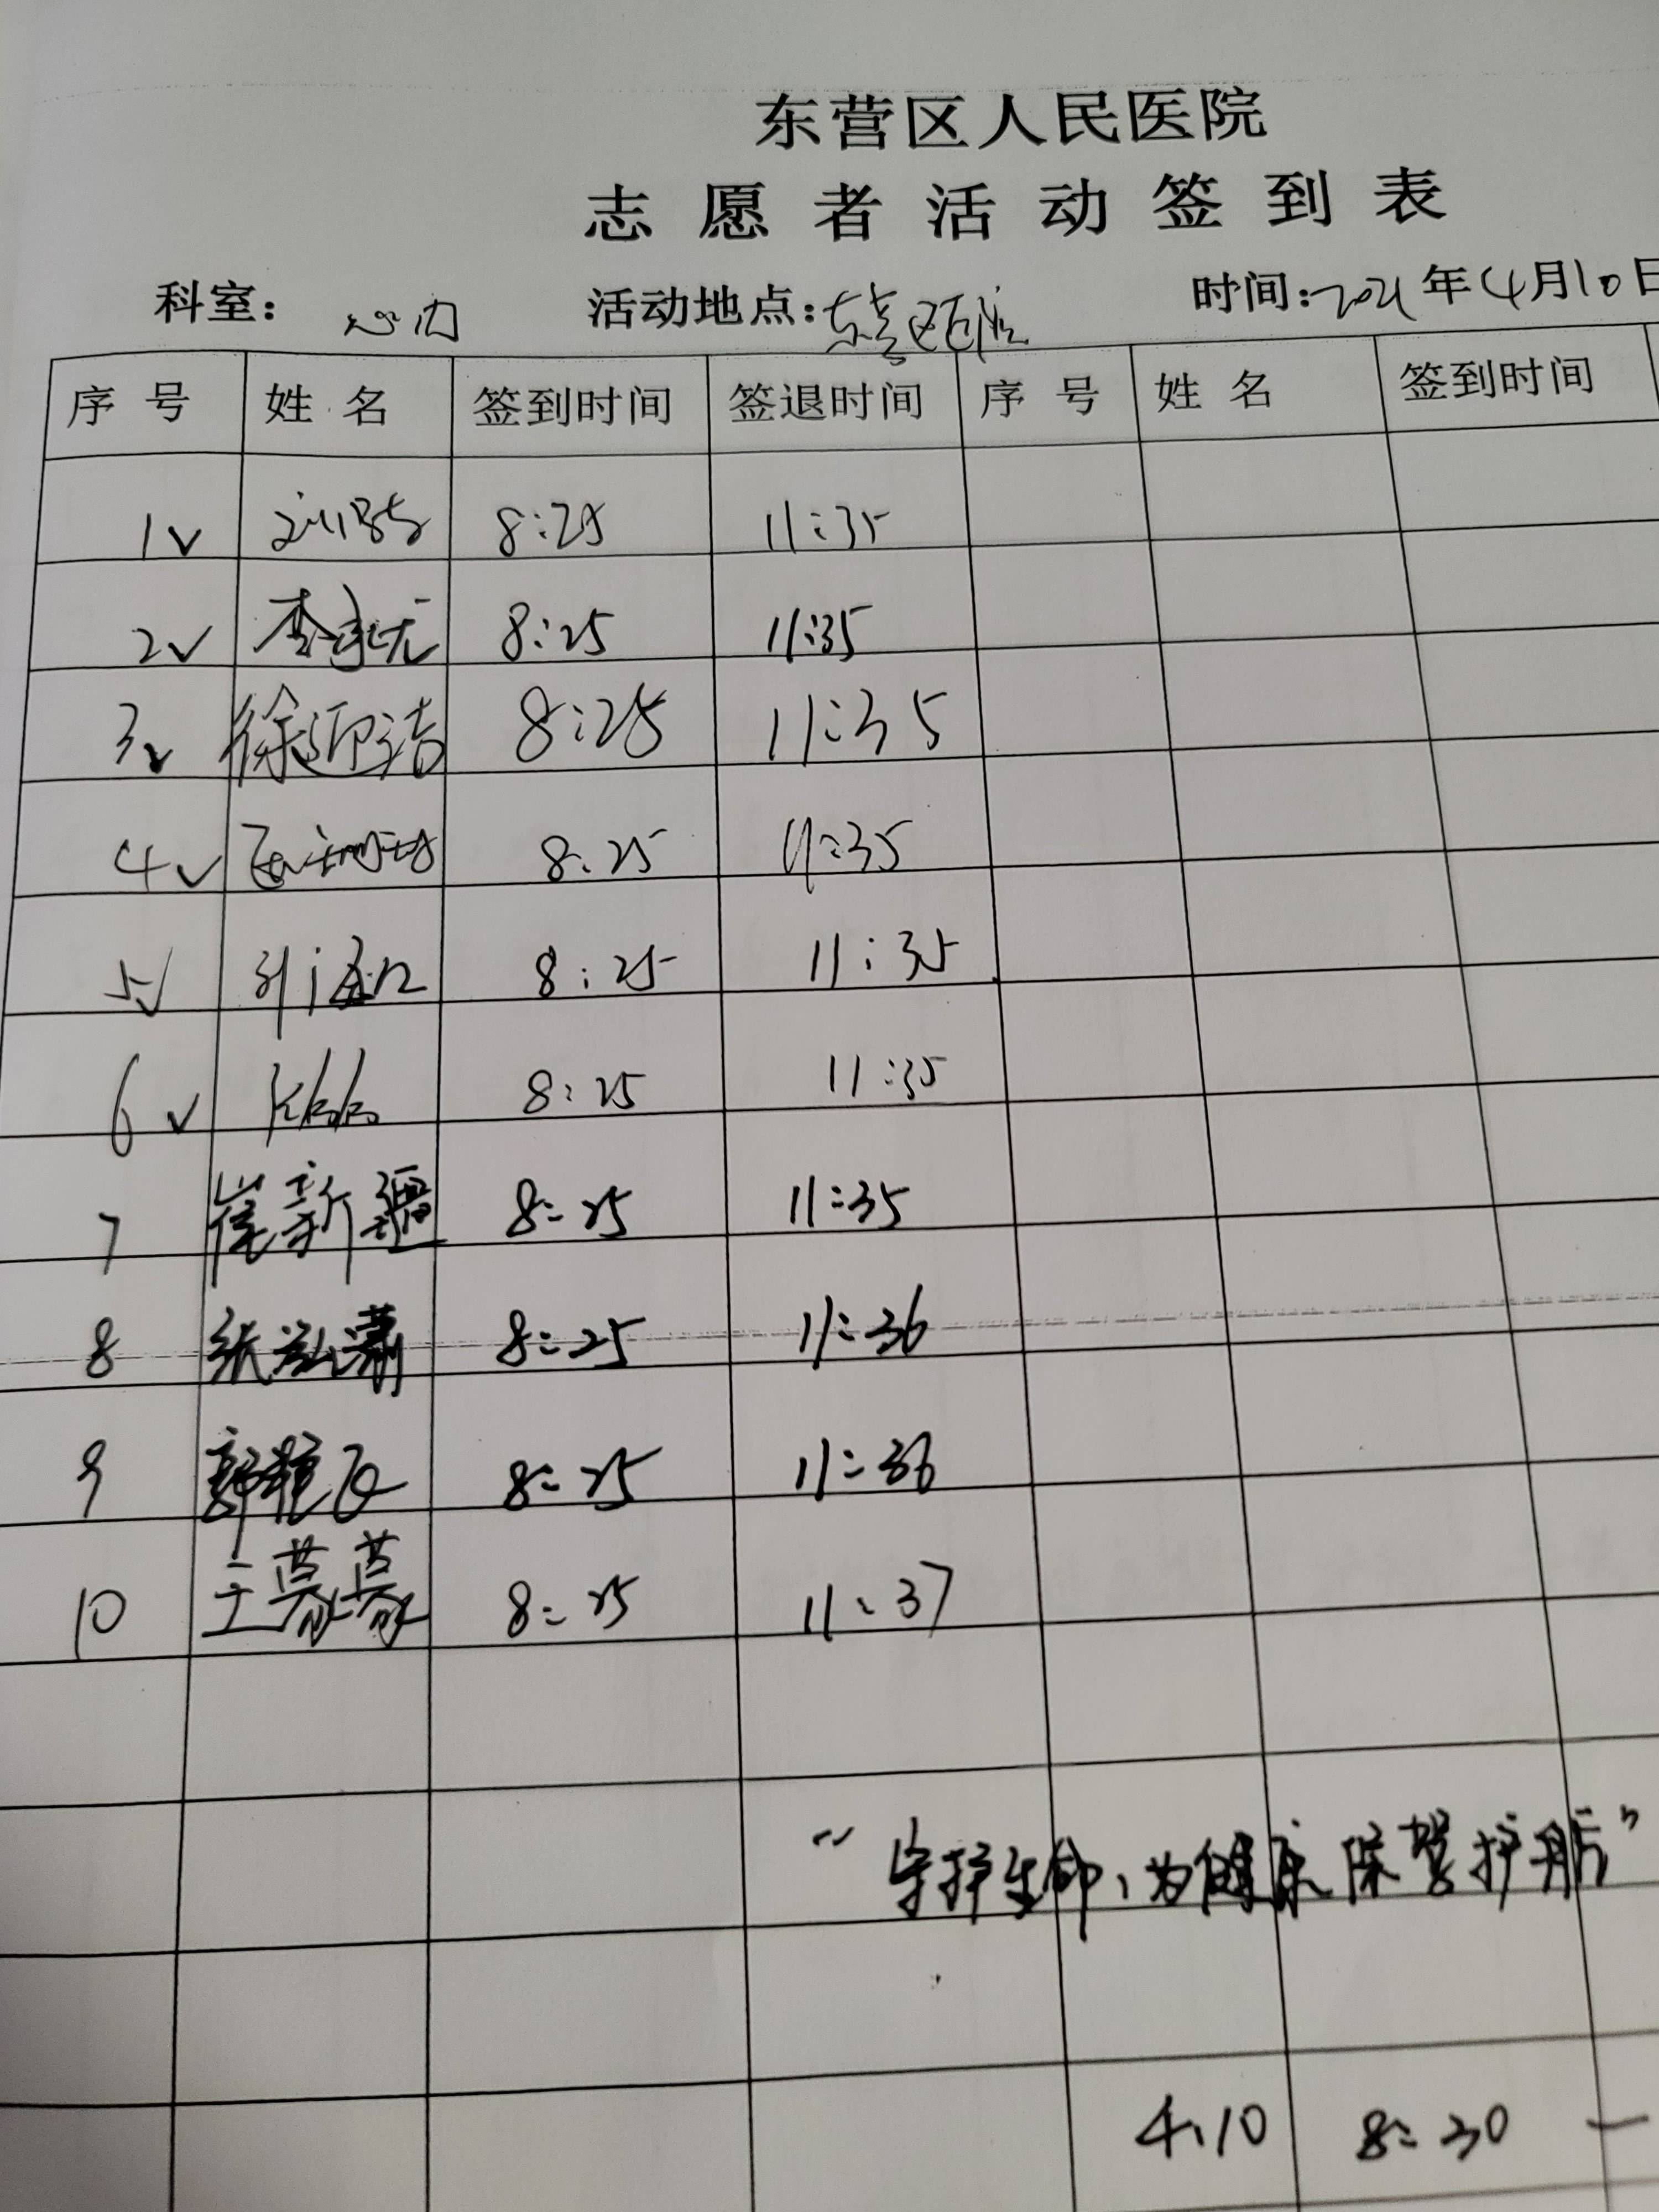 东营区人民医院
志愿者活动签到表
科室: 心内 活动地点: 东营区医院 时间: 2021年4月10日
序号 姓名 签到时间 签退时间 序号 姓名 签到时间
1✓ 8:25 11:35
2✓ 8:25 11:35
3✓ 徐迎洁 8:25 11:35
4✓ 8:25 11:35
5✓ 8:25 11:35
6✓ 8:25 11:35
7 崔新疆 8:25 11:35
8 张泓潇 8:25 11:36
9 郭 8:25 11:36
10 王慕慕 8:25 11:37
“守护生命,为健康保驾护航”
4.10 8:30 —